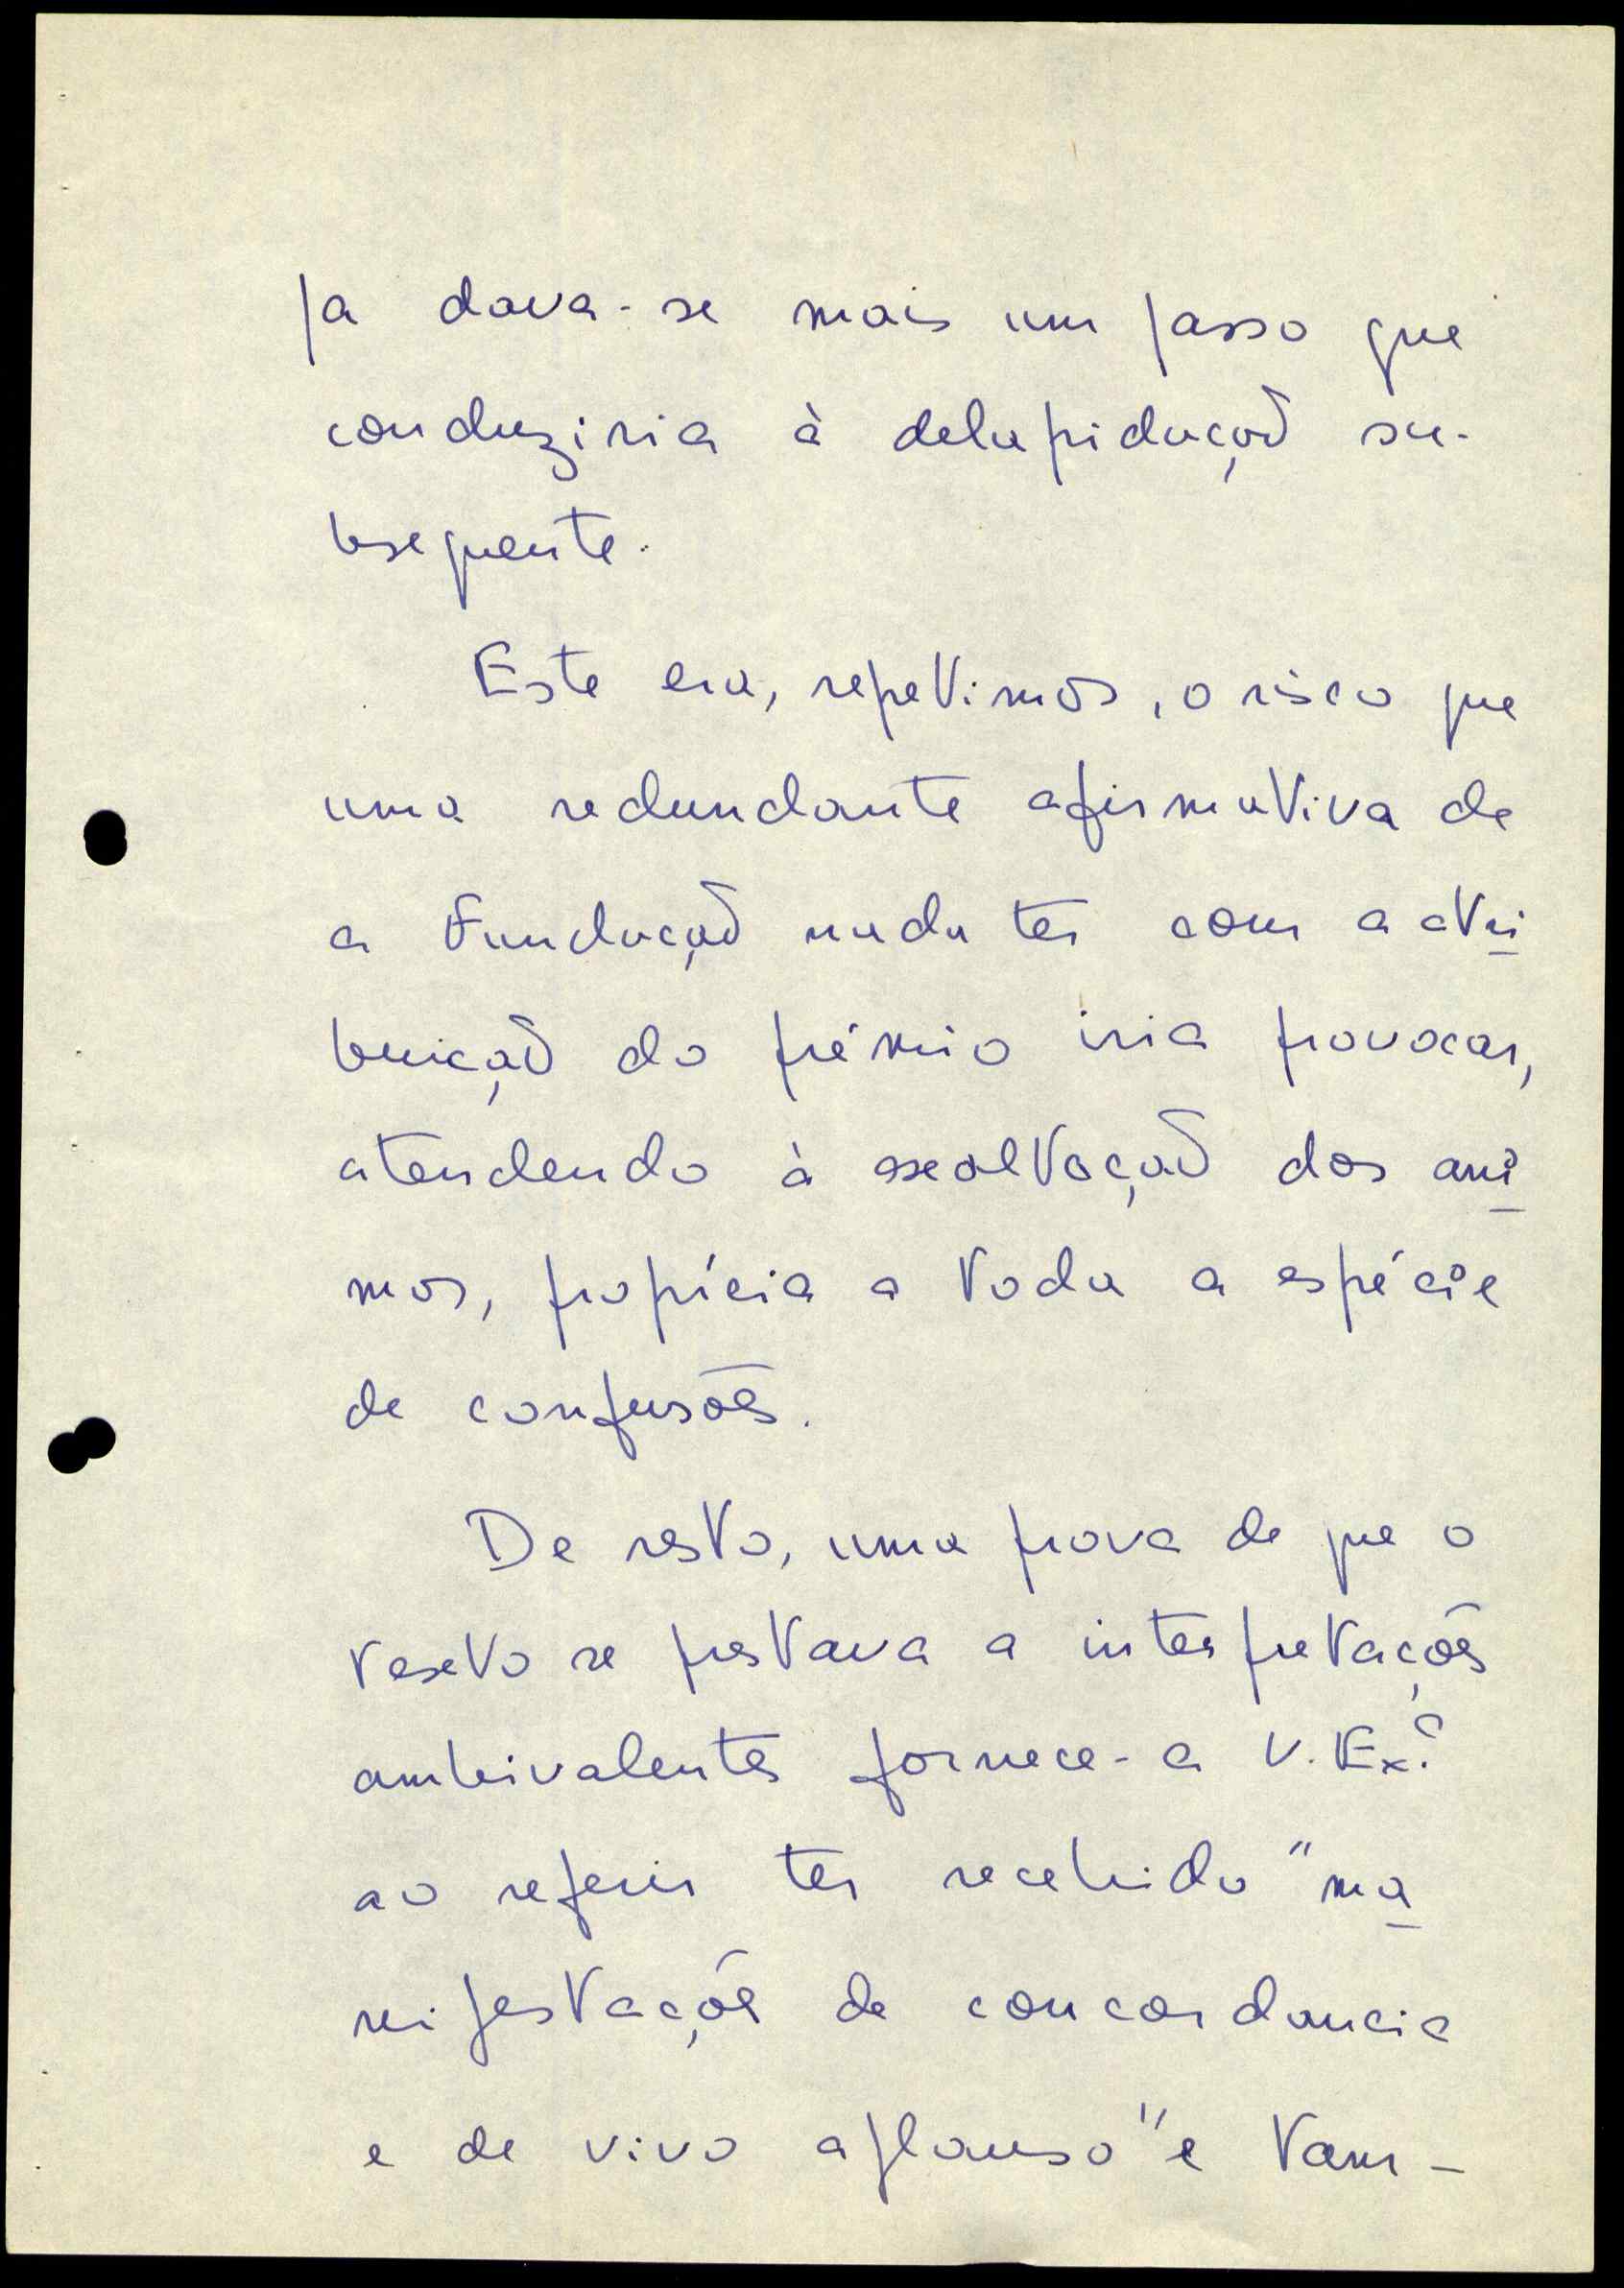 pa dava-se mais um passo que
conduziria à delapidação su-
bsequente.
Este era, repetimos, o risco que
uma redundante afirmativa de
a Fundação nada ter com a atri
buição do prémio iria provocar,
atendendo à exaltação dos ani
mos, propícia a toda a espécie
de confusões.
De resto, uma prova de que o
texto se prestava a interpretações
ambivalentes fornece-a V. Ex.ª
ao referir ter recebido "ma
nifestações de concordancia
e de vivo aplauso" e tam-